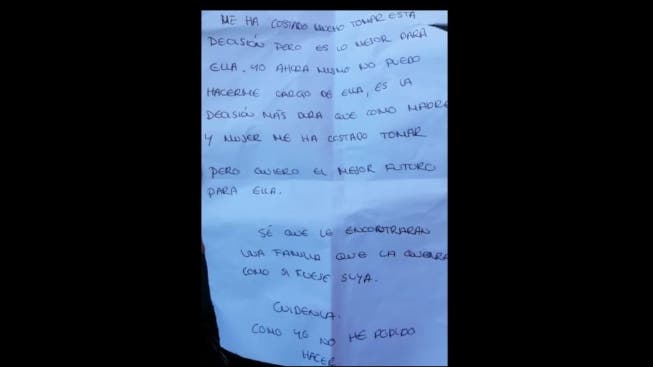 ME HA COSTADO MUCHO TOMAR ESTA
DECISIÓN PERO ES LO MEJOR PARA
ELLA. YO AHORA MISMO NO PUEDO
HACERME CARGO DE ELLA, ES LA
DECISIÓN MÁS DURA QUE COMO MADRE
Y MUJER ME HA COSTADO TOMAR
PERO QUIERO EL MEJOR FUTURO
PARA ELLA.
SÉ QUE LE ENCONTRARAN
UNA FAMILIA QUE LA QUERRA
COMO SI FUESE SUYA.
CUIDENLA.
COMO YO NO HE PODIDO
HACER